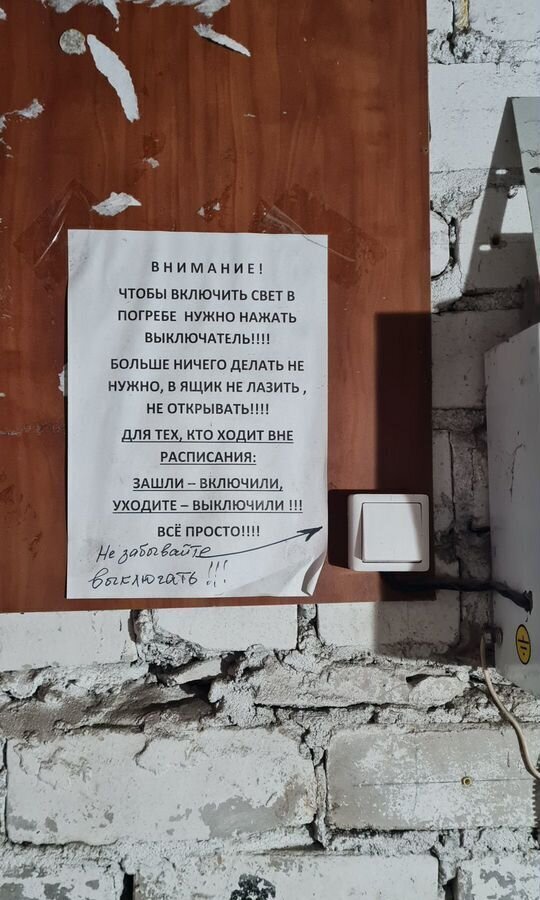 ВНИМАНИЕ!
ЧТОБЫ ВКЛЮЧИТЬ СВЕТ В
ПОГРЕБЕ НУЖНО НАЖАТЬ
ВЫКЛЮЧАТЕЛЬ!!!!
БОЛЬШЕ НИЧЕГО ДЕЛАТЬ НЕ
НУЖНО, В ЯЩИК НЕ ЛАЗИТЬ ,
НЕ ОТКРЫВАТЬ!!!!
ДЛЯ ТЕХ, КТО ХОДИТ ВНЕ
РАСПИСАНИЯ:
ЗАШЛИ – ВКЛЮЧИЛИ,
УХОДИТЕ – ВЫКЛЮЧИЛИ !!!
ВСЁ ПРОСТО!!!!
Не забывайте
выключать !!!